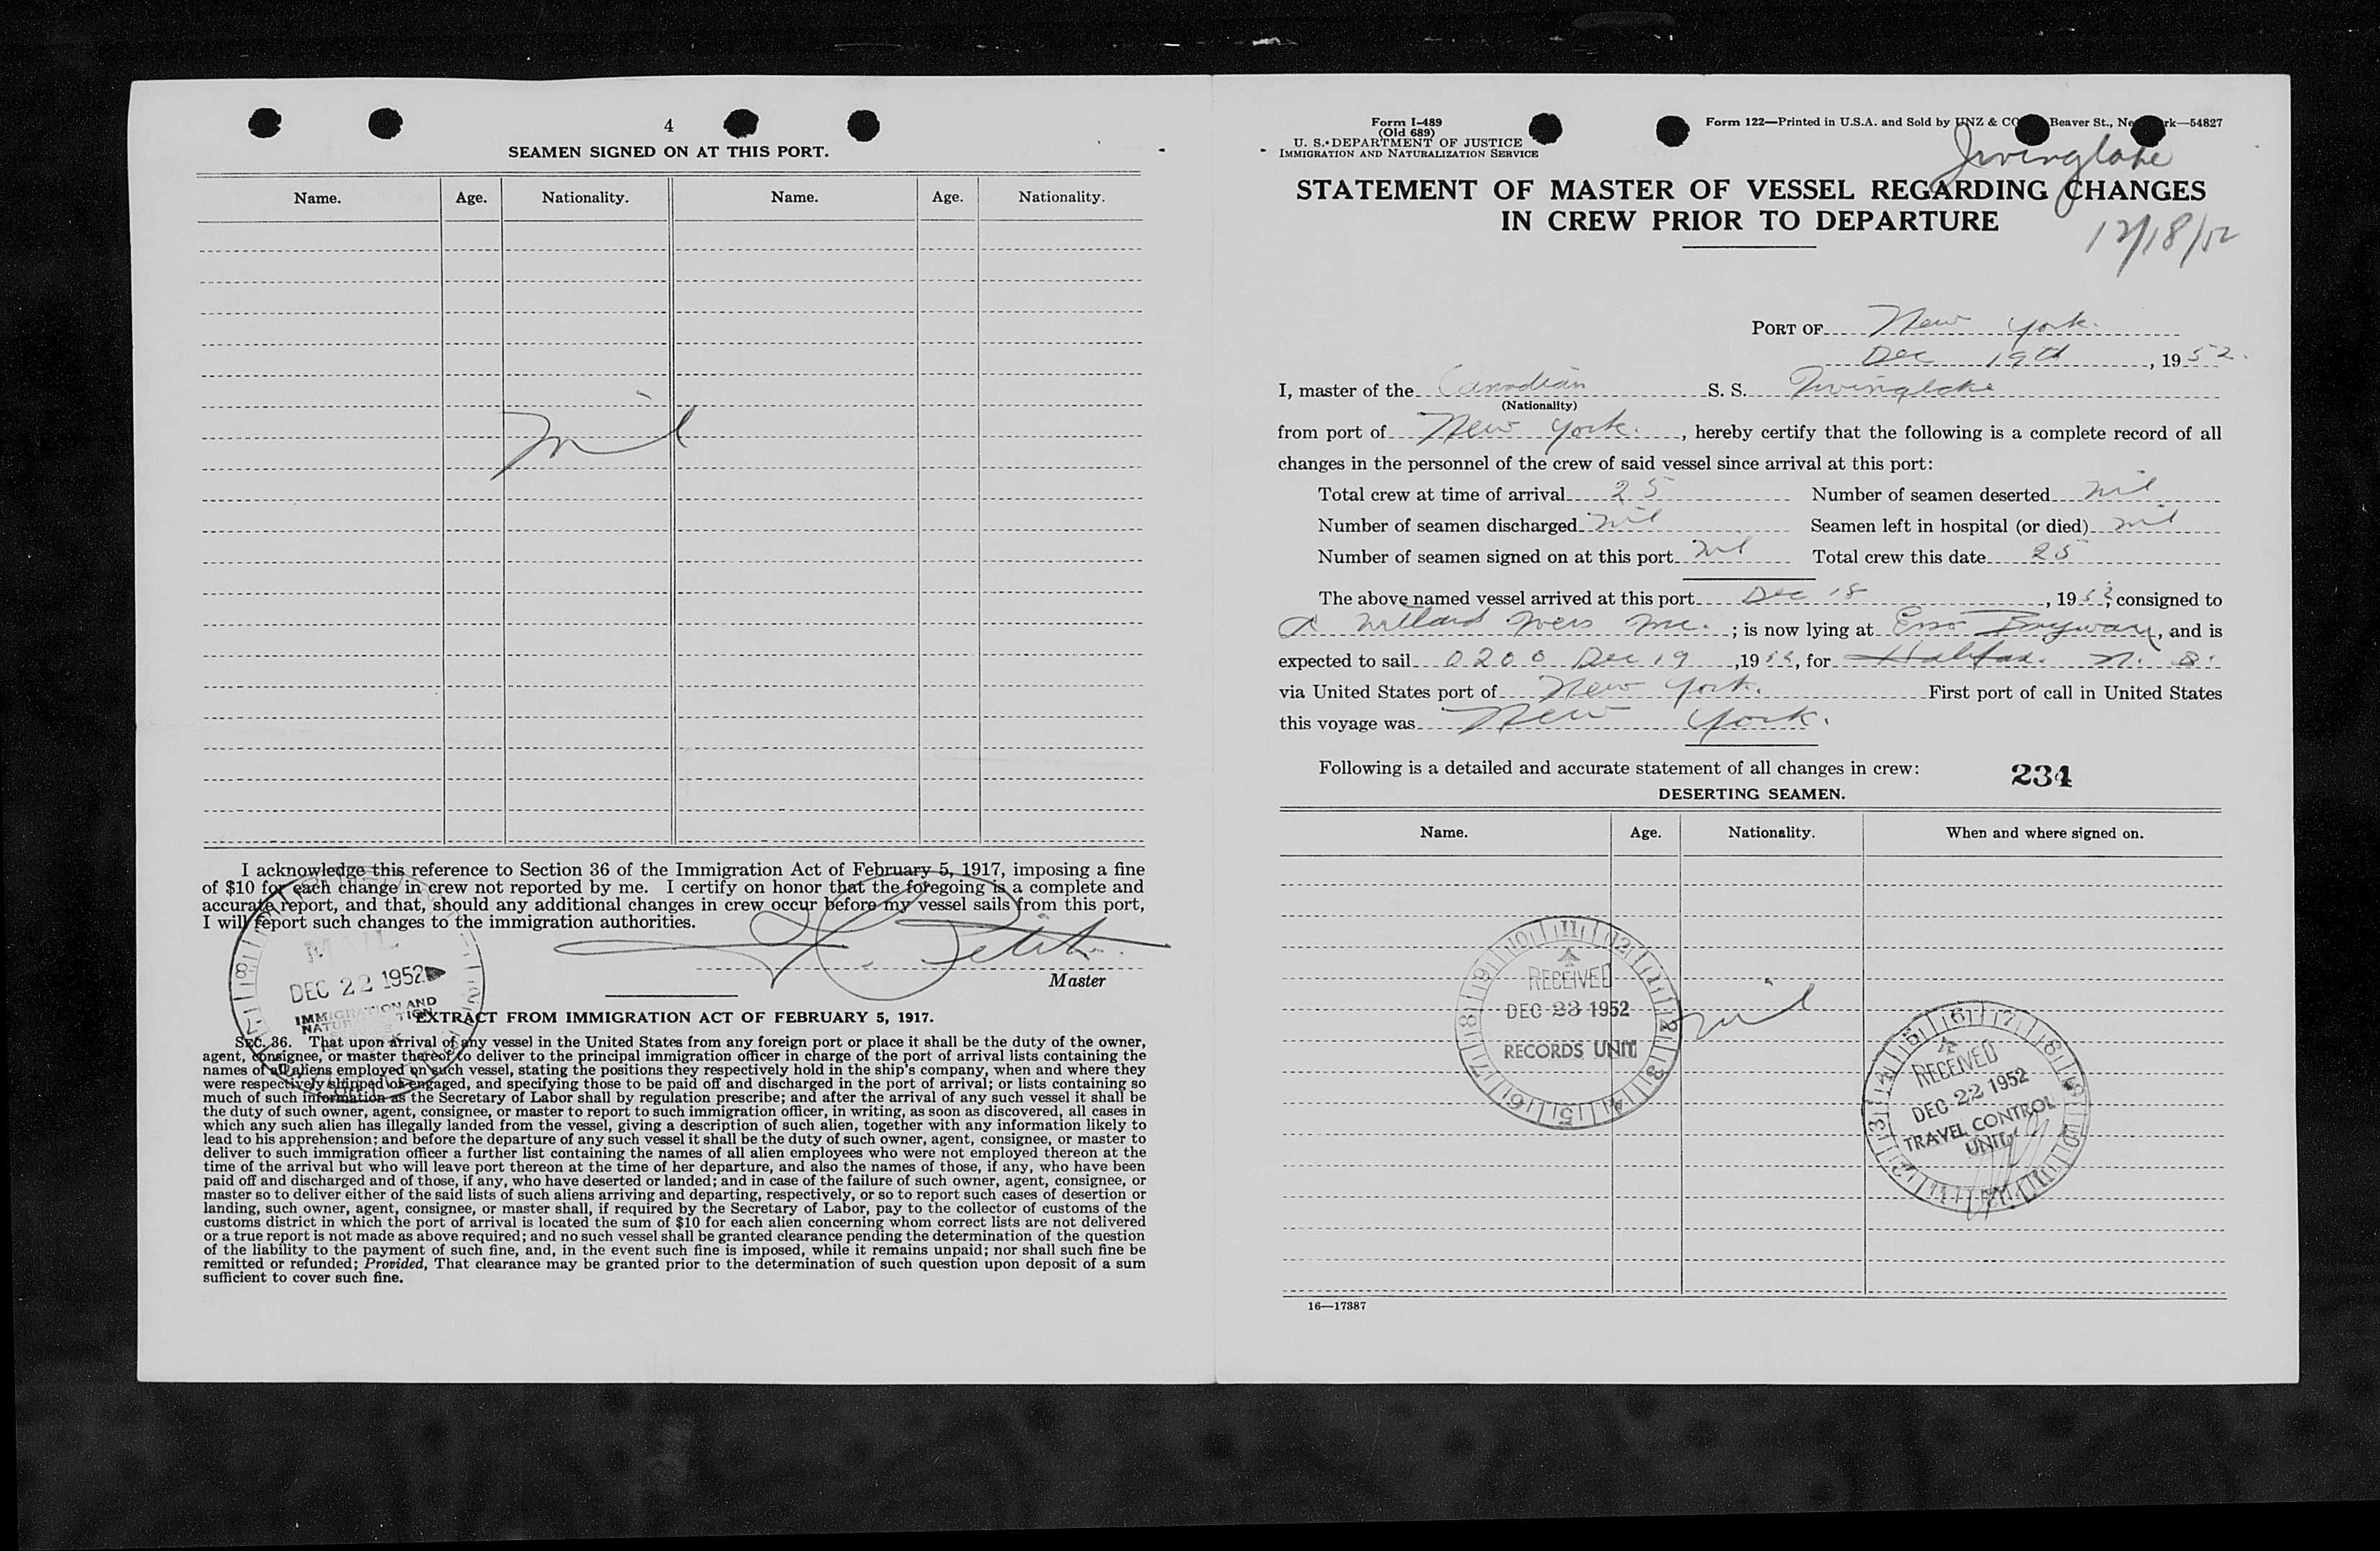 4
SEAMEN SIGNED ON AT THIS PORT.
Name. Age. Nationality. Name. Age. Nationality.
Nil
I acknowledge this reference to Section 36 of the Immigration Act of February 5, 1917, imposing a fine
of $10 for each change in crew not reported by me. I certify on honor that the foregoing is a complete and
accurate report, and that, should any additional changes in crew occur before my vessel sails from this port,
I will report such changes to the immigration authorities.
Master
MAIL
DEC 22 1952
IMMIGRATION AND
EXTRACT FROM IMMIGRATION ACT OF FEBRUARY 5, 1917.
SEC. 36. That upon arrival of any vessel in the United States from any foreign port or place it shall be the duty of the owner,
agent, consignee, or master thereof to deliver to the principal immigration officer in charge of the port of arrival lists containing the
names of all aliens employed on such vessel, stating the positions they respectively hold in the ship's company, when and where they
were respectively shipped or engaged, and specifying those to be paid off and discharged in the port of arrival; or lists containing so
much of such information as the Secretary of Labor shall by regulation prescribe; and after the arrival of any such vessel it shall be
the duty of such owner, agent, consignee, or master to report to such immigration officer, in writing, as soon as discovered, all cases in
which any such alien has illegally landed from the vessel, giving a description of such alien, together with any information likely to
lead to his apprehension; and before the departure of any such vessel it shall be the duty of such owner, agent, consignee, or master to
deliver to such immigration officer a further list containing the names of all alien employees who were not employed thereon at the
time of the arrival but who will leave port thereon at the time of her departure, and also the names of those, if any, who have been
paid off and discharged and of those, if any, who have deserted or landed; and in case of the failure of such owner, agent, consignee, or
master so to deliver either of the said lists of such aliens arriving and departing, respectively, or so to report such cases of desertion or
landing, such owner, agent, consignee, or master shall, if required by the Secretary of Labor, pay to the collector of customs of the
customs district in which the port of arrival is located the sum of $10 for each alien concerning whom correct lists are not delivered
or a true report is not made as above required; and no such vessel shall be granted clearance pending the determination of the question
of the liability to the payment of such fine, and, in the event such fine is imposed, while it remains unpaid; nor shall such fine be
remitted or refunded; Provided, That clearance may be granted prior to the determination of such question upon deposit of a sum
sufficient to cover such fine.
Form I-489
(Old 689)
U. S. DEPARTMENT OF JUSTICE
IMMIGRATION AND NATURALIZATION SERVICE
Form 122—Printed in U.S.A. and Sold by UNZ & CO Beaver St., Ne rk—54827
Irvinglake
STATEMENT OF MASTER OF VESSEL REGARDING CHANGES
IN CREW PRIOR TO DEPARTURE
12/18/52
PORT OF New York.
Dec 19th, 1952.
I, master of the Canadian S. S. Irvinglake
(Nationality)
from port of New York., hereby certify that the following is a complete record of all
changes in the personnel of the crew of said vessel since arrival at this port:
Total crew at time of arrival 25 Number of seamen deserted nil
Number of seamen discharged nil Seamen left in hospital (or died) nil
Number of seamen signed on at this port nil Total crew this date 25
The above named vessel arrived at this port Dec 18, 1952, consigned to
Willard Ivers Inc.; is now lying at Esso Bayway, and is
expected to sail 0200 Dec 19, 1952, for Halifax. N. S.
via United States port of New York. First port of call in United States
this voyage was New York.
Following is a detailed and accurate statement of all changes in crew:
234
DESERTING SEAMEN.
Name. Age. Nationality. When and where signed on.
nil
RECEIVED
DEC 23 1952
RECORDS UNIT
RECEIVED
DEC 22 1952
TRAVEL CONTROL
UNIT
16—17387